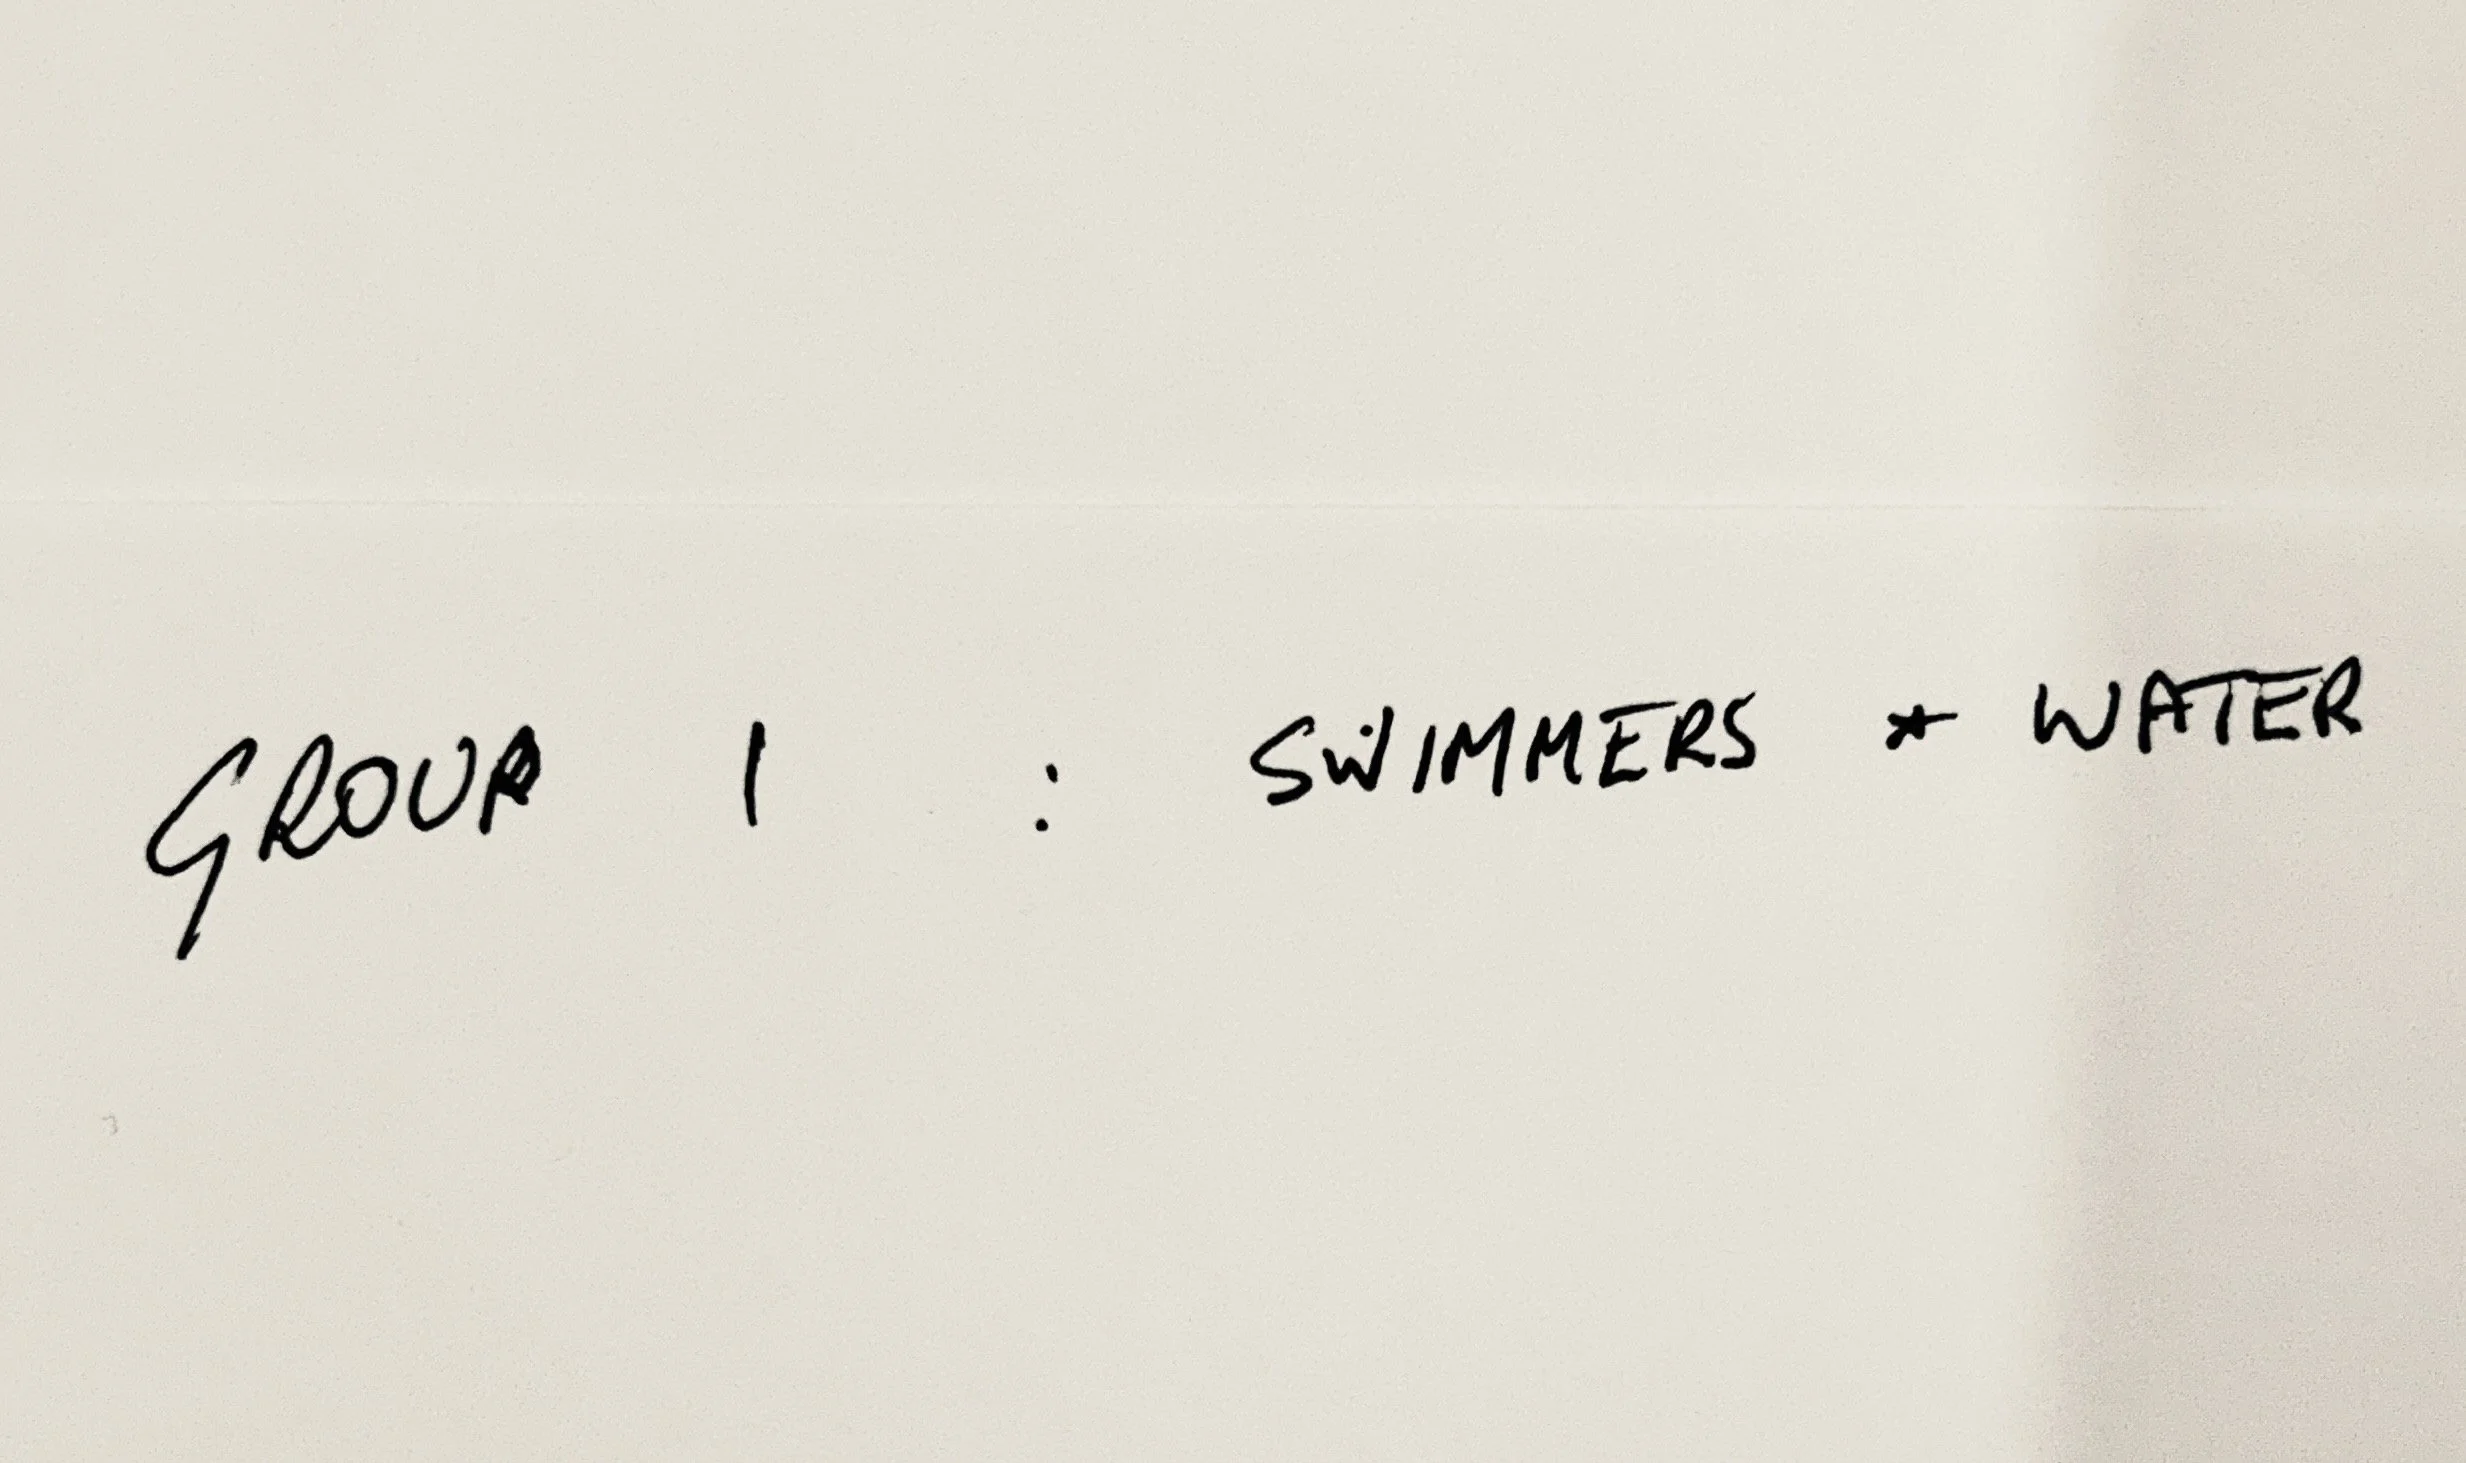 GROUP 1 : SWIMMERS * WATER